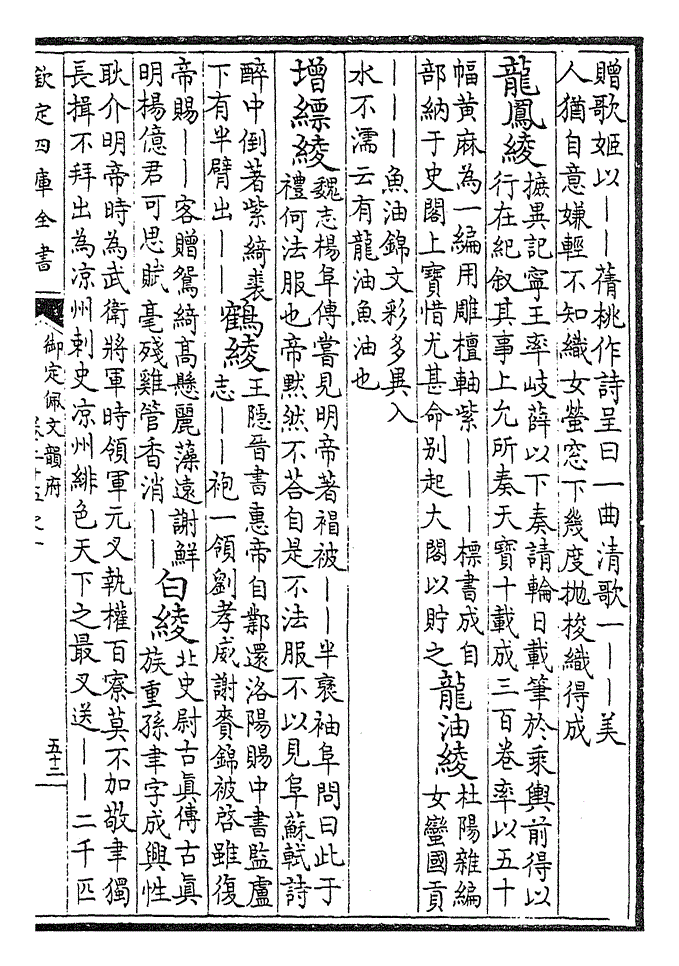 贈歌姬以——蒨桃作詩呈曰一曲清歌一——美
人猶自意嫌輕不知織女螢窓下幾度抛梭織得成
龍鳳綾
摭異記寧王率岐薛以下奏請輪日載筆於乘輿前得以
行在紀叙其事上允所奏天寶十載成三百卷率以五十
幅黄麻為一編用雕檀軸紫———標書成自
部納于史閣上寶惜尤甚命别起大閣以貯之
龍油綾
杜陽雜編
女蠻國貢
———魚油錦文彩多異入
水不濡云有龍油魚油也
增縹綾
魏志楊阜傳嘗見明帝著褶被——半袤袖阜問曰此于
禮何法服也帝默然不荅自是不法服不以見阜蘇軾詩
醉中倒著紫綺裘
下有半臂出——
鶴綾
王隱晉書惠帝自鄴還洛陽賜中書監盧
志——袍一領劉孝威謝賚錦被啓雖復
帝賜——客贈鴛綺高懸麗藻遠謝鮮
明楊億君可思賦毫殘雞管香消——
白綾
北史尉古真傳古真
族重孫聿字成興性
耿介明帝時為武衛將軍時領軍元叉執權百寮莫不加敬聿獨
長揖不拜出為凉州刺史凉州緋色天下之最叉送——二千匹
欽定四庫全書
御定佩文韻府
五十二